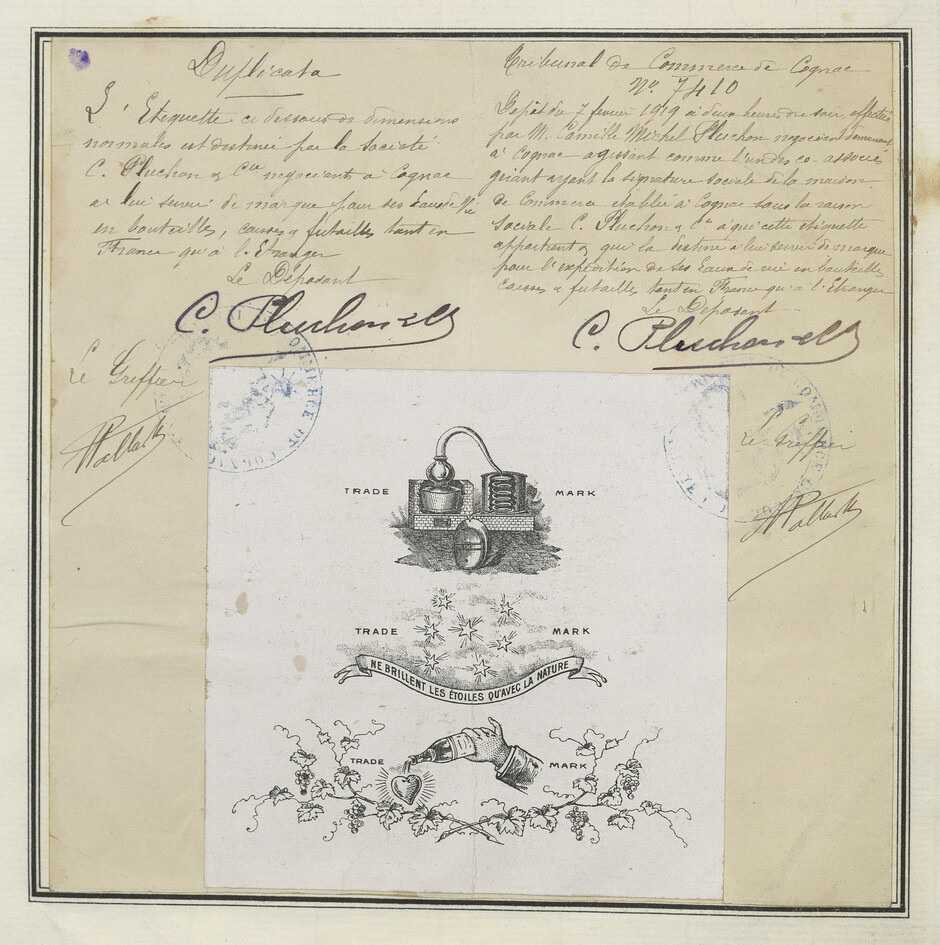 Duplicata
L'Etiquette ci dessous de dimensions
normales est destinée par la Société
C. Pluchon & Cie negociants à Cognac
à lui servir de marque pour ses Eaux de Vie
en bouteilles, caisses & futailles tant en
France qu'à l'Etranger
Le Déposant
C. Pluchon & Cie
Le Greffier
Tribunal de Commerce de Cognac
No. 7410
Dépôt du 7 fevrier 1919 à deux heures du soir, effectué
par M. Camille Michel Pluchon negociant demeurant
à Cognac agissant comme l'un des co-associé
gérant ayant la signature sociale de la maison
de Commerce établie à Cognac sous la raison
sociale C. Pluchon & Cie à qui cette étiquette
appartient & qui la destine à lui servir de marque
pour l'expédition de ses Eaux de vie en bouteilles
caisses & futailles tant en France qu'à l'Etranger
Le Déposant
C. Pluchon & Cie
Le Greffier
TRADE MARK
TRADE MARK
NE BRILLENT LES ÉTOILES QU'AVEC LA NATURE
TRADE MARK